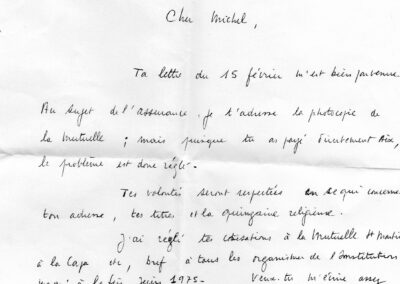 Cher Michel,
Ta lettre du 15 février m'est bien parvenue.
Au sujet de l'assurance, je t'adresse la photocopie de
la Mutuelle ; mais puisque tu as payé directement
le problème est donc réglé.
Tes volontés seront respectées en ce qui concerne
ton adresse, tes titres et la Quinzaine religieuse.
J'ai réglé tes cotisations à la Mutuelle St Martin
à la Capa etc, bref à tous les organismes de l'Institution
à la fin Juin 1975. Veux-tu assez